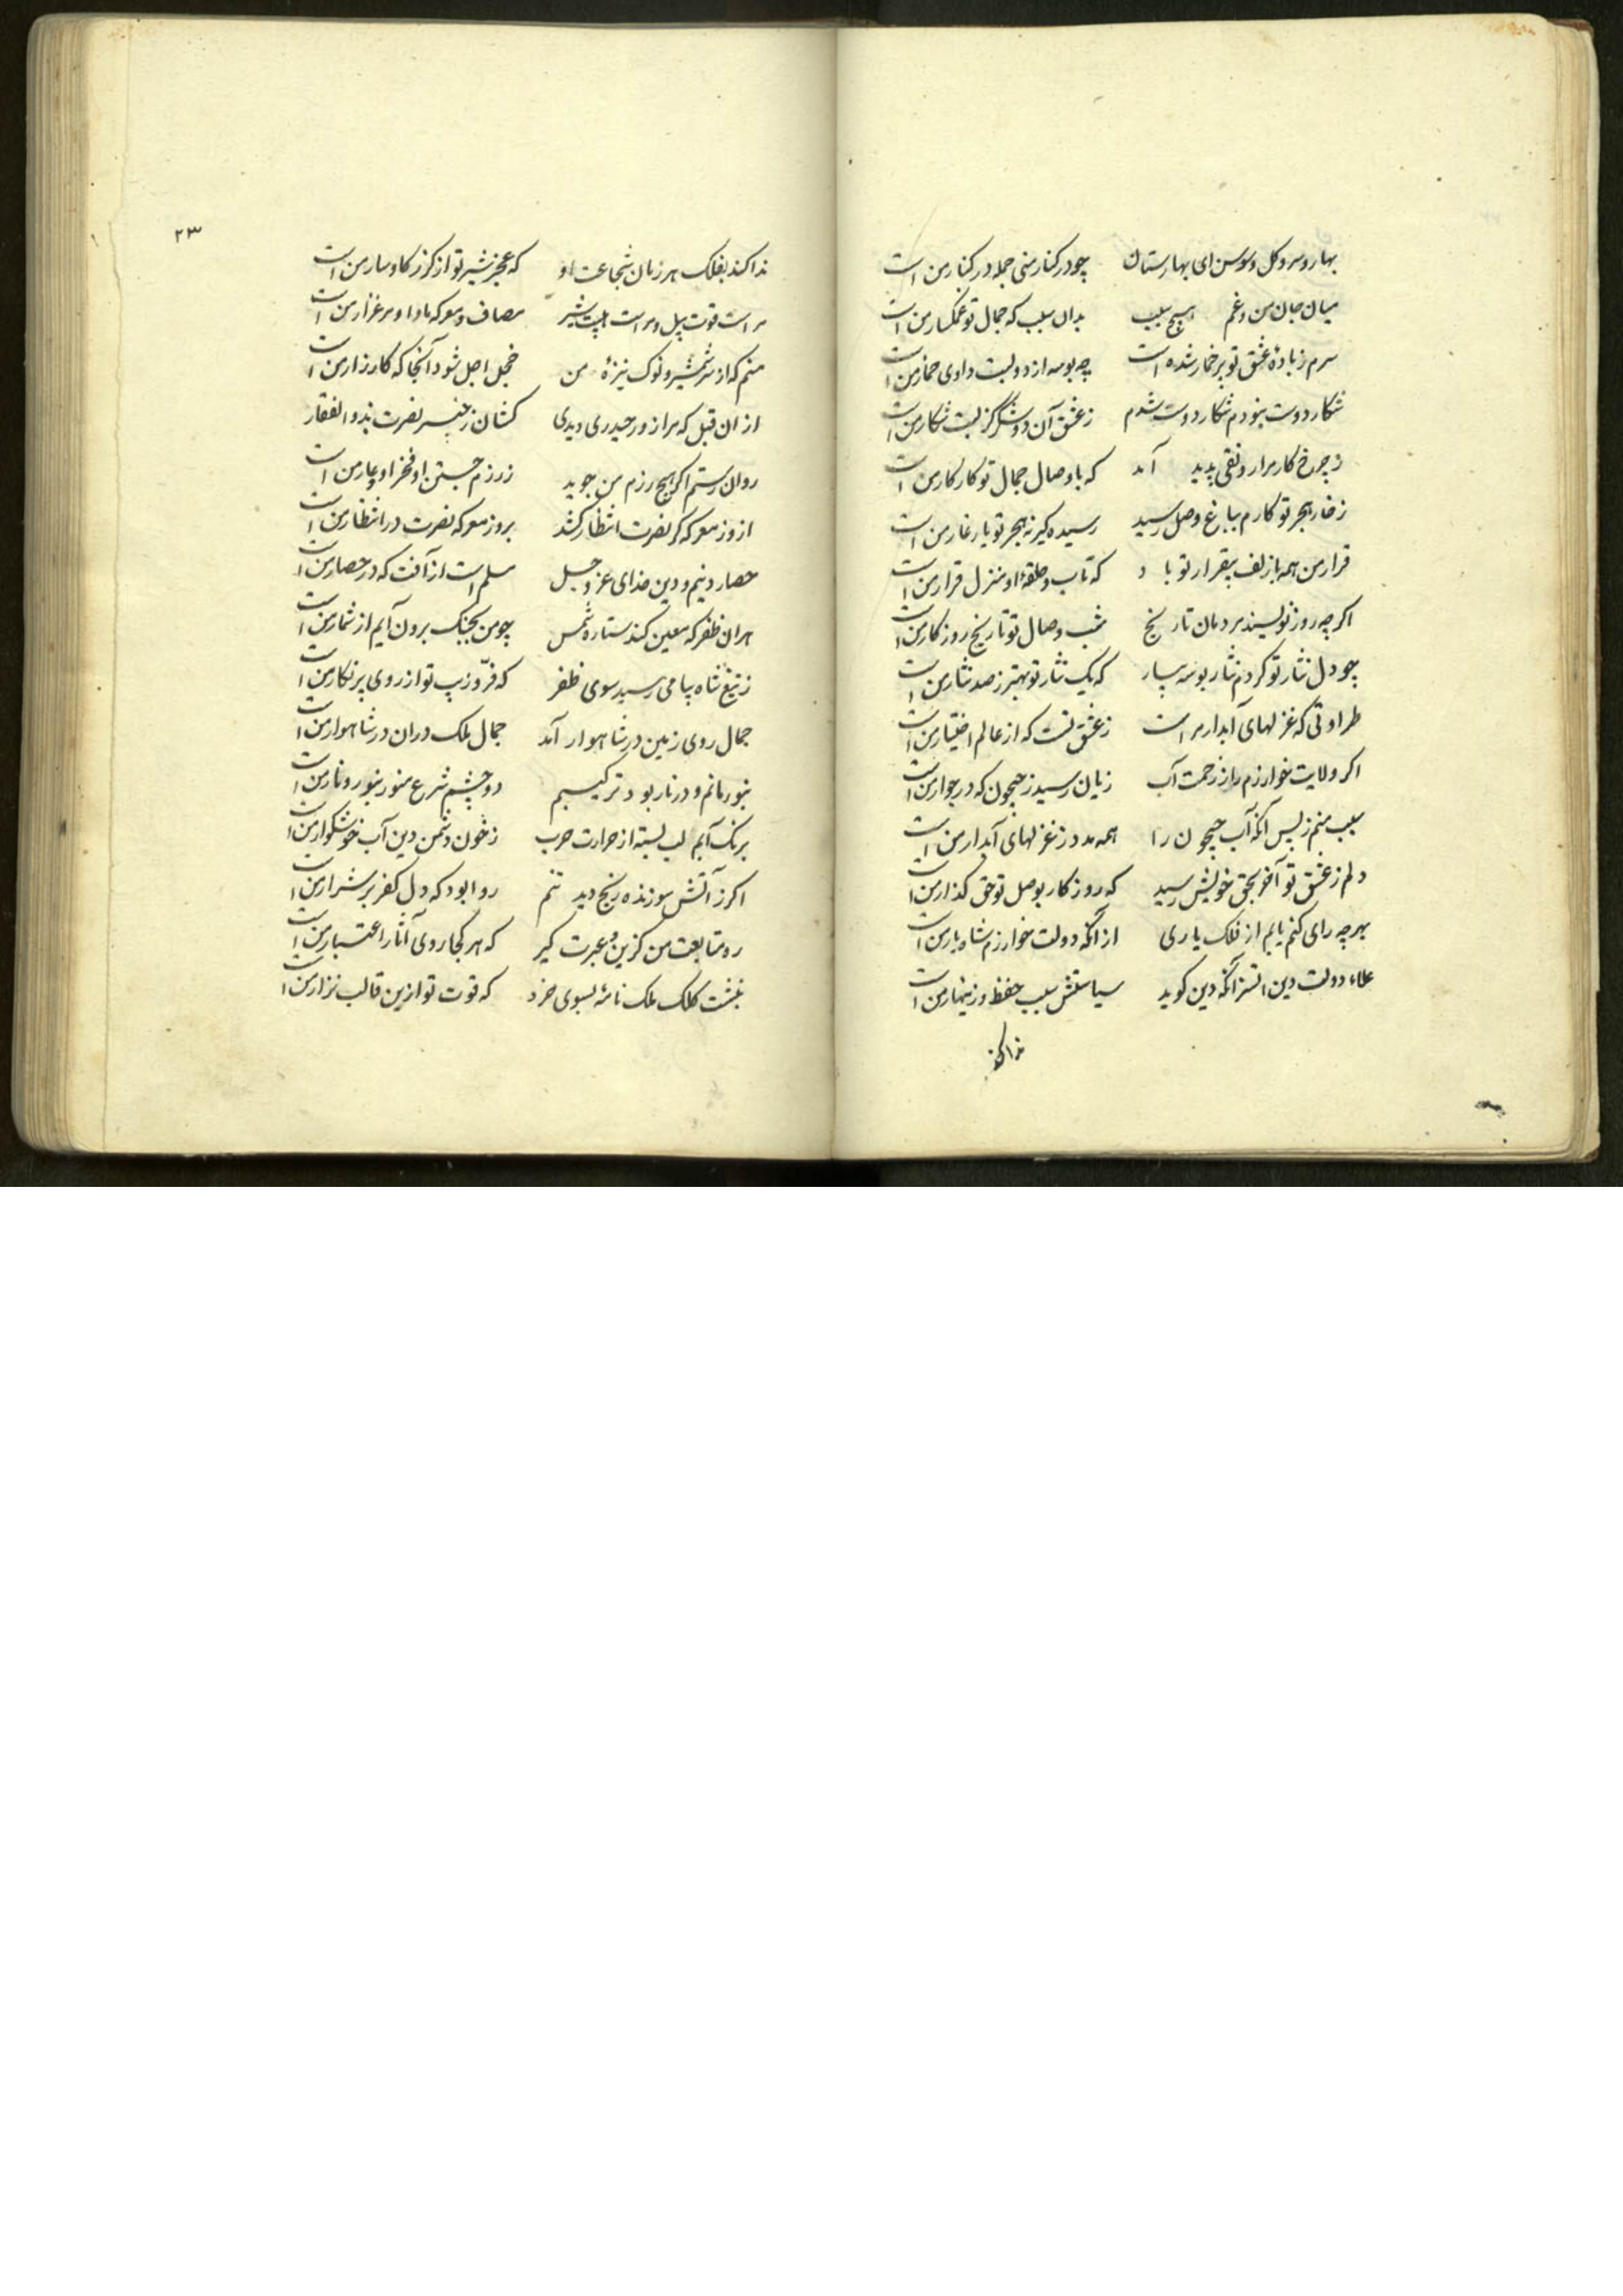 بهار و سرو و کل و سوسن ای بهارستان چو در کنار منی جمله در کنار من است
میان جان من و غم هیچ سبب بدان سبب که جمال تو غمکسار من است
سرم ز بادهٔ عشق تو پر خمار شده است چه بوسه از دو لبت داوی خمار من است
شکار دوست نبودم شکار دوست شدم ز عشق آن دو که لبت شکار من است
ز چرخ کار مرا رونقی پدید آمد که با وصال جمال تو کار کار من است
ز خار هجر تو کارم بباغ وصل رسید رسیده کیر نه هجر تو یار غار من است
قرار من همه با زلف بیقرار تو باد که تاب و حلقهٔ او منزل قرار من است
اکر چه روز نویسند مردمان تاریخ شب وصال تو تاریخ روزکار من است
چو دل نثار تو کردم نثار بوسه بیار که یک نثار تو بهتر ز صد نثار من است
طراوتی که غزلهای آبدار مراست ز عشق تست که از عالم اختیار من است
اکر ولایت خوارزم را ز زحمت آب زیان رسید ز جیحون که در جوار من است
سبب منم ز پس آنکه آب جیحون را همه مدد ز غزلهای آبدار من است
دلم ز عشق تو آخر بحق خویش رسید که روزکار بوصل تو حق کذار من است
بهر چه رای کنم یابم از فلک یاری از آنکه دولت خوارزم شاه یار من است
علاء دولت دین اتسز آنکه دین کوید سیاستش سبب حفظ و زینهار من است
ندا کند
۲۳
ندا کند بفلک هر زمان شجاعت او که عجز شیر تو از کرز کاوسار من است
مراست قوت پیل و مراست هیبت شیر مصاف و معرکه ماوا و مرغزار من است
منم که از سر شمشیر و نوک نیزهٔ من خجل اجل شود آنجا که کارزار من است
از آن قبل که مرا زور حیدری دیدی کشان ز خنجر نصرت بذوالفقار
روان رستم اکر هیچ رزم من جوید ز رزم جستن او فخر او و عار من است
از روز معرکه کر نصرت انتظار کشد بروز معرکه نصرت در انتظار من است
حصار دینم و دین خدای عز و جل مسلم است از آفت که در حصار من است
هر آن ظفر که معین کند ستاره شمس چو من بجنک برون آیم از شمار من است
ز تیغ شاه پیامی رسید سوی ظفر که فر و زیب تو از روی پر نکار من است
جمال روی زمین در شاهوار آمد جمال ملک در آن در شاهوار من است
بنور مانم و در نار بود ترکیبم دو چشم شرع منور بنور و نار من است
برنک آبم لب بسته از حرارت حرب ز خون دشمن دین آب خوشکوار من است
اکر ز آتش سوزنده رنج دید تنم روا بود که دل کفر پر شرار من است
ره متابعت من کزین و عبرت کیر که هر کجا روی آثار اعتبار من است
نبشت کلک ملک نامهٔ بسوی خرد که قوت تو ازین قالب نزار من است